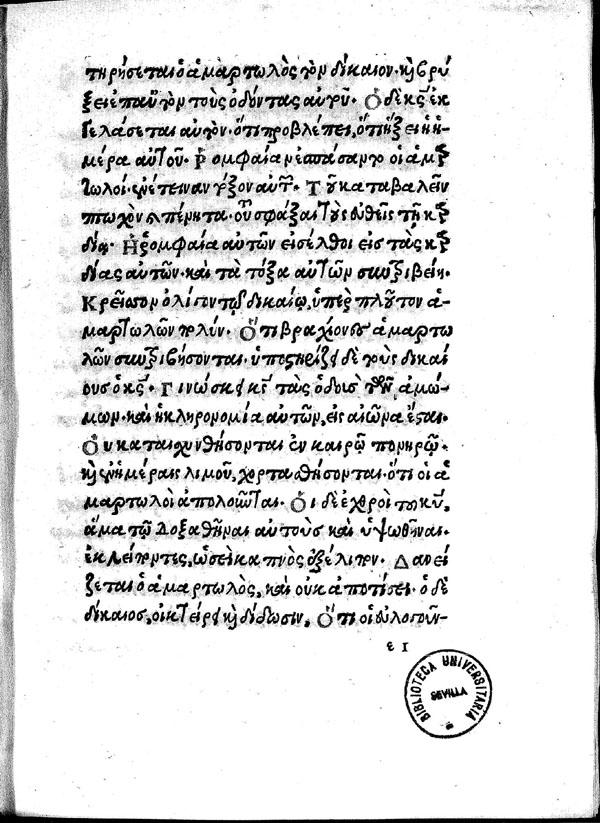 τηρήσεται ὁ ἁμαρτωλὸς τὸν δίκαιον· καὶ βρύ
ξει ἐπ' αὐτὸν τοὺς ὀδόντας αὐτοῦ. Ὁ δὲ κς ἐκ
γελάσεται αὐτὸν· ὅτι προβλέπει, ὅτι ἥξει ἡ ἡ-
μέρα αὐτοῦ. Ῥομφαίαν ἐσπάσαντο οἱ ἁμαρ
τωλοί· ἐνέτειναν τόξον αὐτῶν. Τοῦ καταβαλεῖν
πτωχὸν καὶ πένητα· τοῦ σφάξαι τοὺς εὐθεῖς τῇ καρ
δίᾳ· Ἡ ῥομφαία αὐτῶν εἰσέλθοι εἰς τὰς καρ
δίας αὐτῶν· καὶ τὰ τόξα αὐτῶν συντριβείη.
Κρεῖσσον ὀλίγον τῷ δικαίῳ, ὑπὲρ πλοῦτον ἁ-
μαρτωλῶν πολύν. Ὅτι βραχίονες ἁμαρτω
λῶν συντριβήσονται. ὑποστηρίζει δὲ τοὺς δικαί
ους ὁ κς. Γινώσκει κς τὰς ὁδοὺς τῶν ἀμώ-
μων· καὶ ἡ κληρονομία αὐτῶν, εἰς αἰῶνα ἔσται.
Οὐ καταισχυνθήσονται ἐν καιρῷ πονηρῷ·
καὶ ἐν ἡμέραις λιμοῦ, χορτασθήσονται. ὅτι οἱ ἁ
μαρτωλοὶ ἀπολοῦνται. Οἱ δὲ ἐχθροὶ τοῦ κυ,
ἅμα τῷ δοξασθῆναι αὐτοὺς καὶ ὑψωθῆναι.
ἐκλείποντες, ὡσεὶ καπνὸς ἐξέλιπον. Δανεί
ζεται ὁ ἁμαρτωλός, καὶ οὐκ ἀποτίσει· ὁ δὲ
δίκαιος, οἰκτείρει καὶ δίδωσιν, Ὅτι οἱ εὐλογοῦν-
ε 1
BIBLIOTECA UNIVERSITARIA
SEVILLA